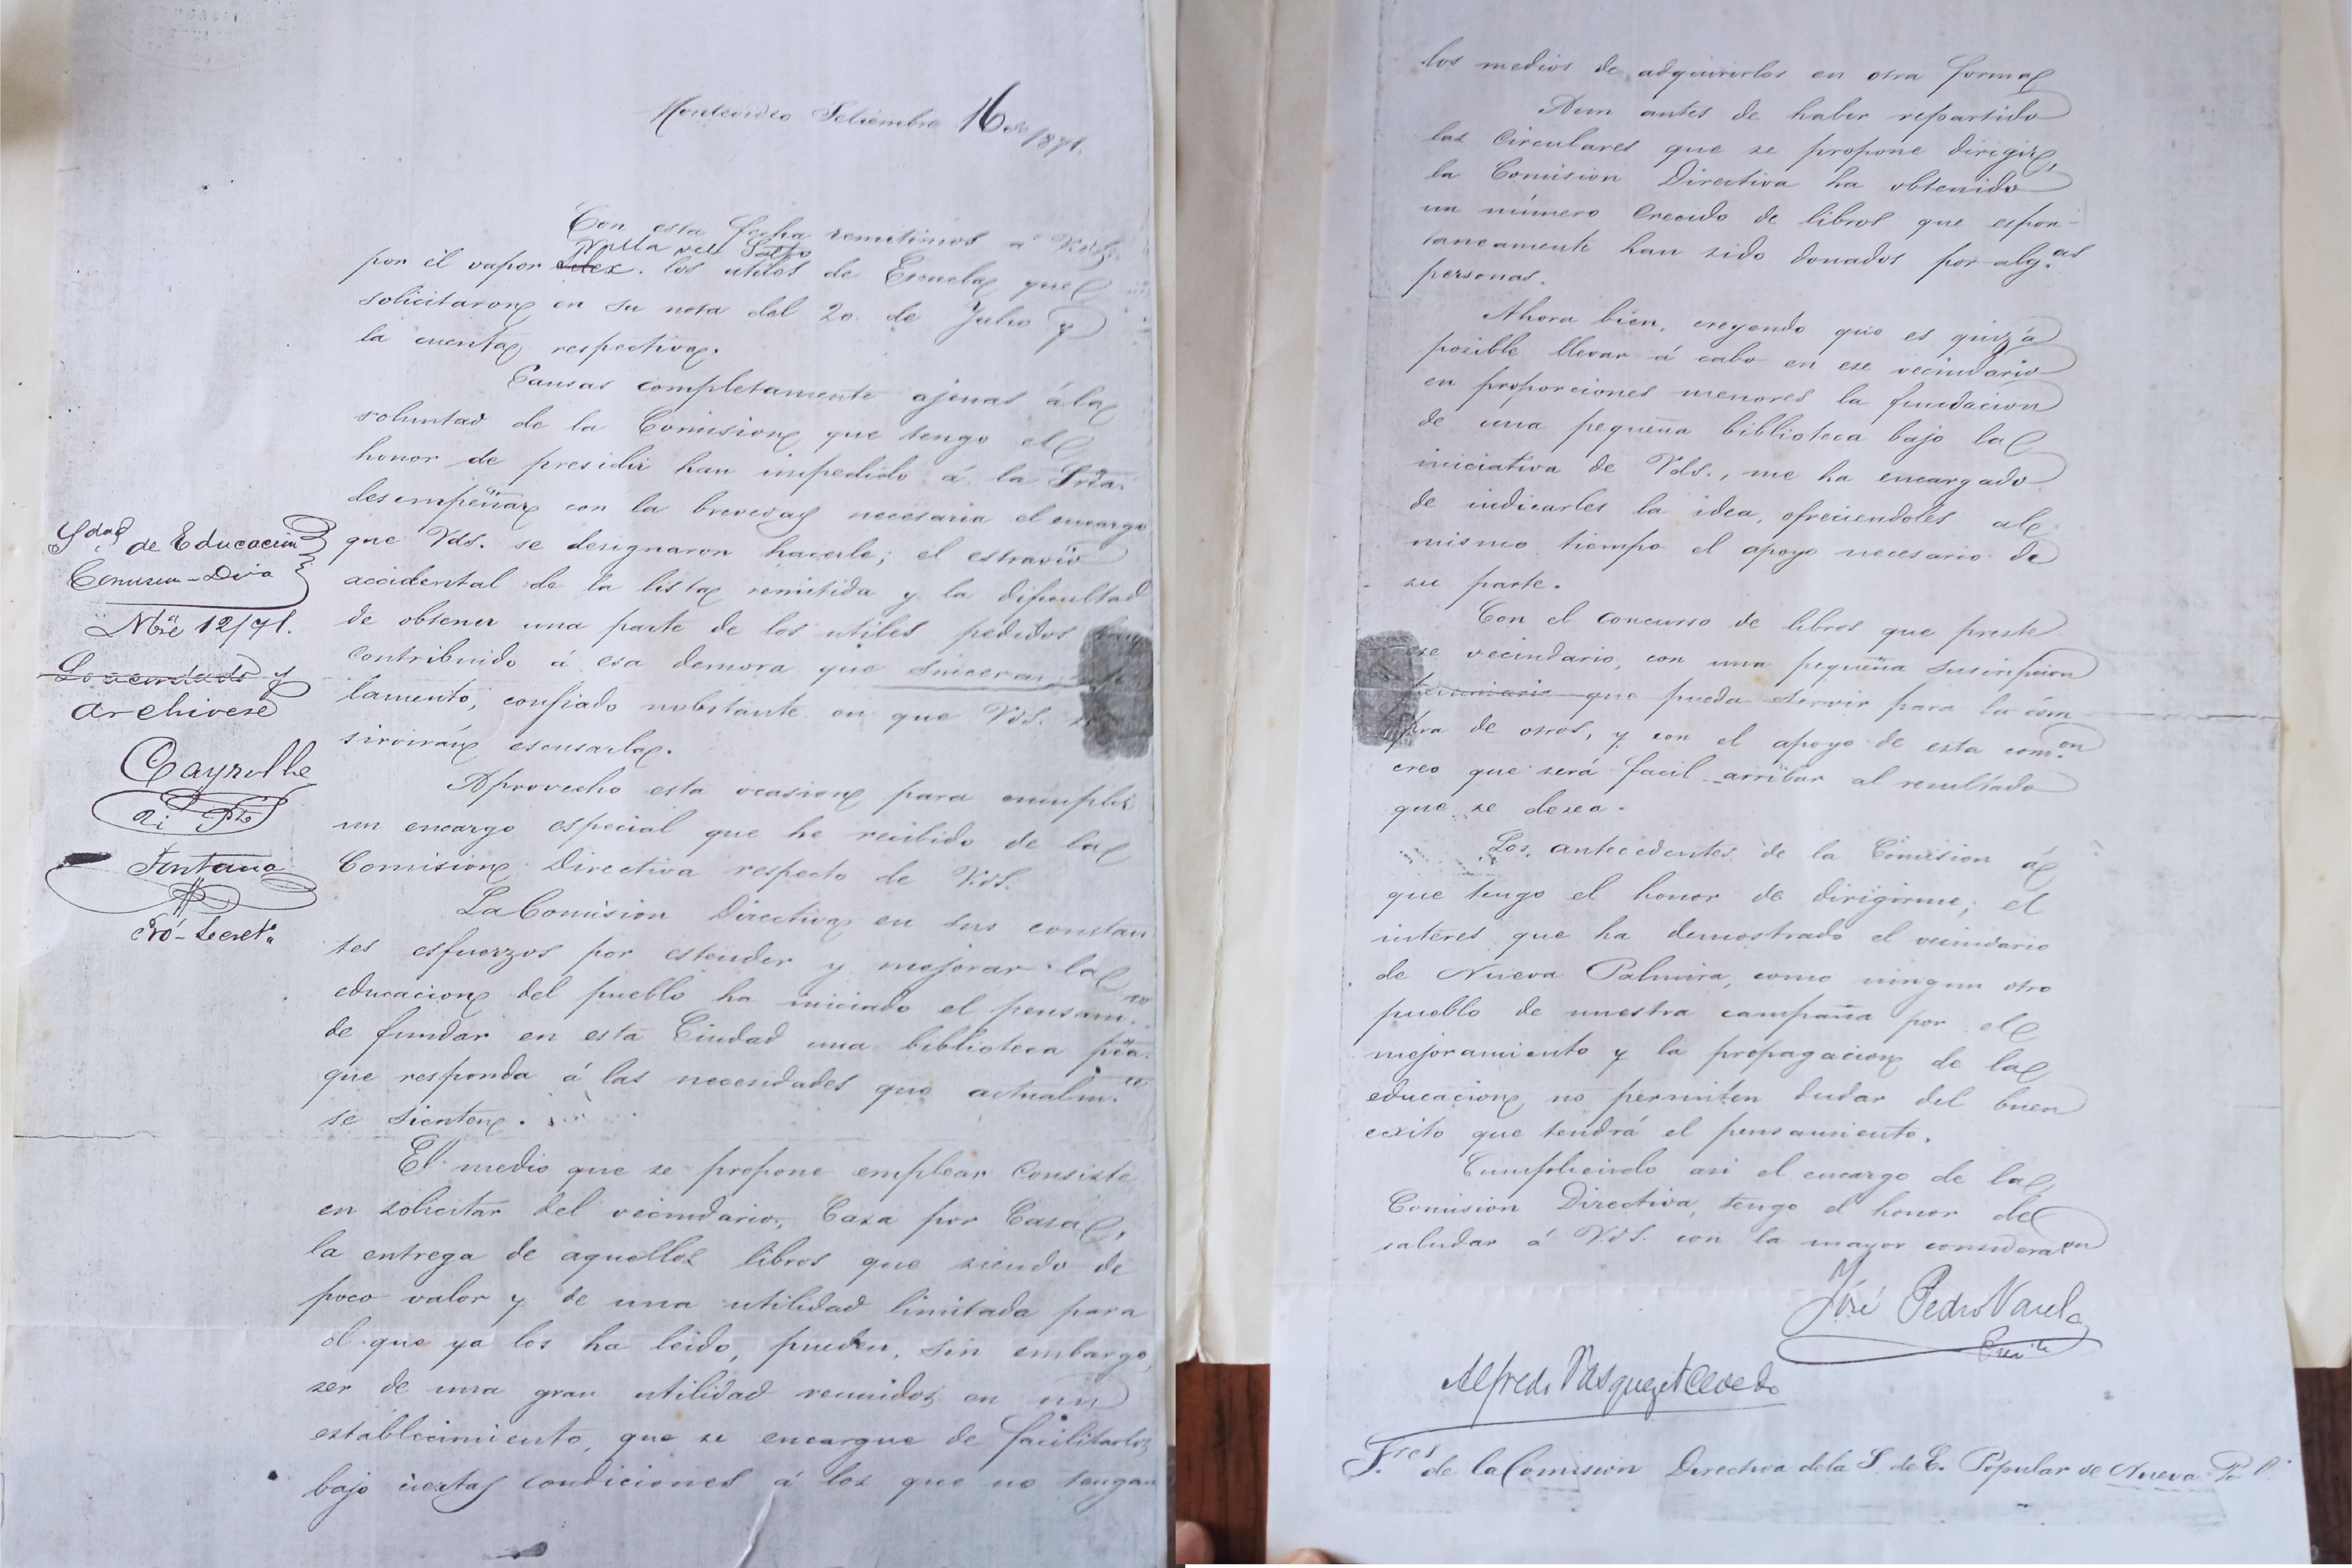 Montevideo Setiembre 16 de 1871.
Con esta fecha remitimos á Vds.
Villa del Salto
por el vapor los utiles de Escuela que
solicitaron en su nota del 20 de Julio y
la cuenta respectiva.
Causas completamente ajenas á la
voluntad de la Comision que tengo el
honor de presidir han impedido á la Sria.
desempeñar con la brevedad necesaria el encargo
que Vds. se designaron hacerle; el estravio
accidental de la lista remitida y la dificultad
de obtener una parte de los utiles pedidos han
contribuido á esa demora que
lamento, confiado nobstante en que Vds. se
servirán escusarla.
Aprovecho esta ocasion para cumplir
un encargo especial que he recibido de la
Comision Directiva respecto de Vds.
La Comision Directiva en sus constan
tes esfuerzos por estender y mejorar la
educacion del pueblo ha iniciado el pensam.to
de fundar en esta Ciudad una biblioteca pca.
que responda á las necesidades que actualm.te
se sienten.
El medio que se propone emplear consiste
en solicitar del vecindario, Casa por Casa,
la entrega de aquellos libros que siendo de
poco valor y de una utilidad limitada para
el que ya los ha leido, pueden, sin embargo,
ser de una gran utilidad reunidos en un
establecimiento, que se encargue de facilitarlos
bajo ciertas condiciones á los que no tengan
Sdad de Educacion
Comision Diva
Nbre 12/71.
y
archivese
Cayrolle
Fontana
Pró-Secret.
los medios de adquirirlos en otra forma
Aun antes de haber repartido
las Circulares que se propone dirigir,
la Comision Directiva ha obtenido
un número crecido de libros que espon-
taneamente han sido donados por alg.as
personas.
Ahora bien, creyendo que es quizá
posible llevar á cabo en ese vecindario
en proporciones menores la fundacion
de una pequeña biblioteca bajo la
iniciativa de Vds., me ha encargado
de indicarles la idea, ofreciendoles al
mismo tiempo el apoyo necesario de
su parte.
Con el concurso de libros que preste
ese vecindario, con una pequeña suscripcion
pecuniaria que pueda servir para la com
pra de otros, y con el apoyo de esta com.on
creo que será facil arribar al resultado
que se desea.
Los antecedentes de la Comision á
que tengo el honor de dirigirme; el
interes que ha demostrado el vecindario
de Nueva Palmira, como ningun otro
pueblo de nuestra campaña por el
mejoramiento y la propagacion de la
educacion no permiten dudar del buen
exito que tendrá el pensamiento.
Cumpliendo asi el encargo de la
Comision Directiva, tengo el honor de
saludar á Vds. con la mayor consideraon
José Pedro Varela
Alfredo Vasquez Acevedo
S.res de la Comision Directiva de la S. de E. Popular de Nueva